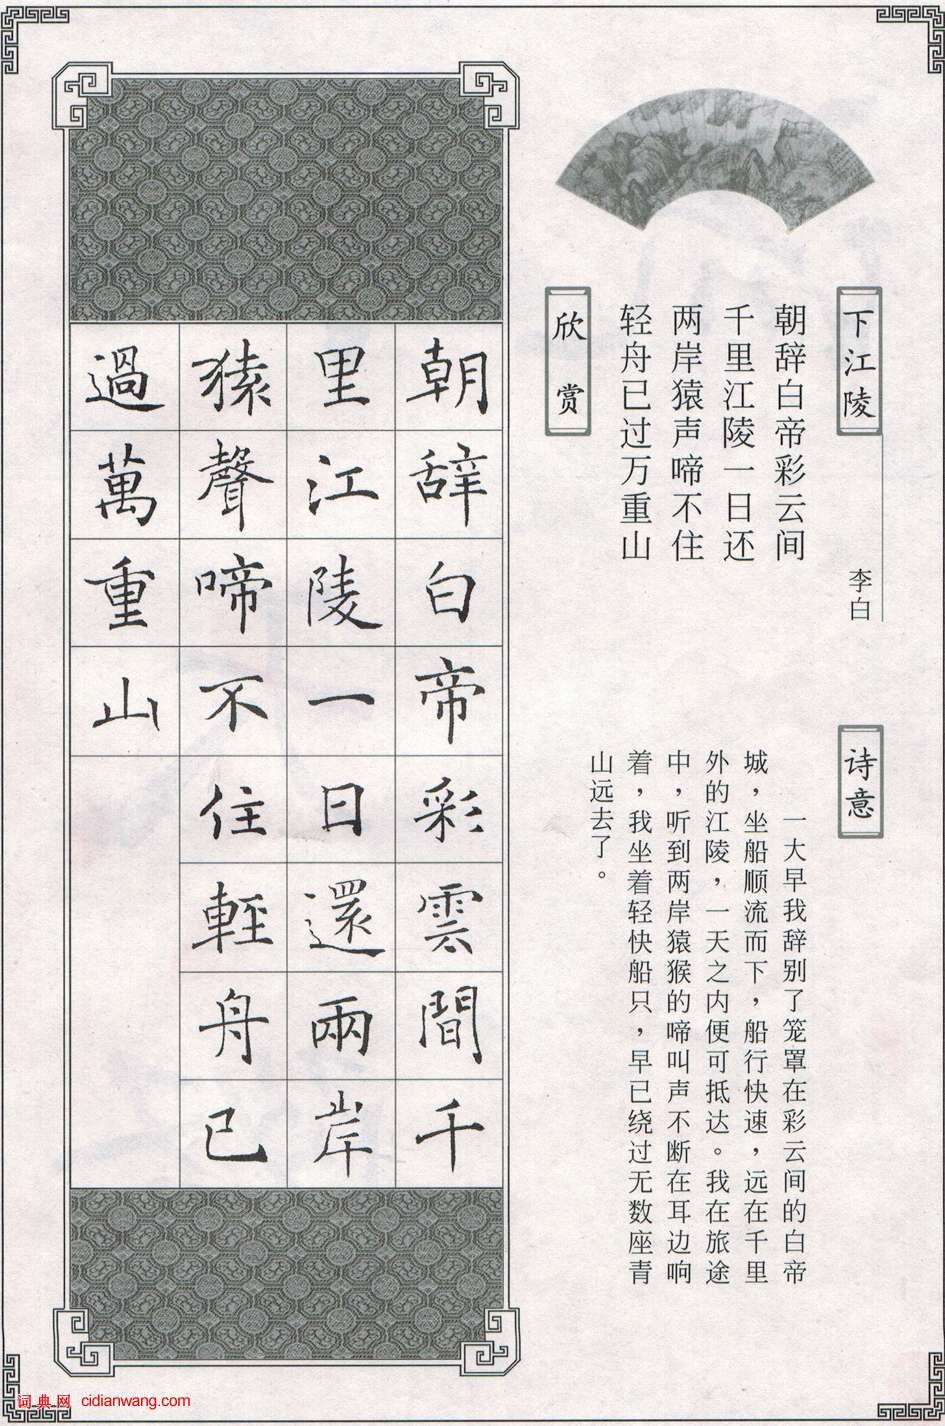 下江陵
李白
朝辞白帝彩云间
千里江陵一日还
两岸猿声啼不住
轻舟已过万重山
欣赏
诗意
一大早我辞别了笼罩在彩云间的白帝
城，坐船顺流而下，船行快速，远在千里
外的江陵，一天之内便可抵达。我在旅途
中，听到两岸猿猴的啼叫声不断在耳边响
着，我坐着轻快船只，早已绕过无数座青
山远去了。
朝辞白帝彩雲間千
里江陵一日還兩岸
猿聲啼不住輕舟已
過萬重山
词典网 cidianwang.com